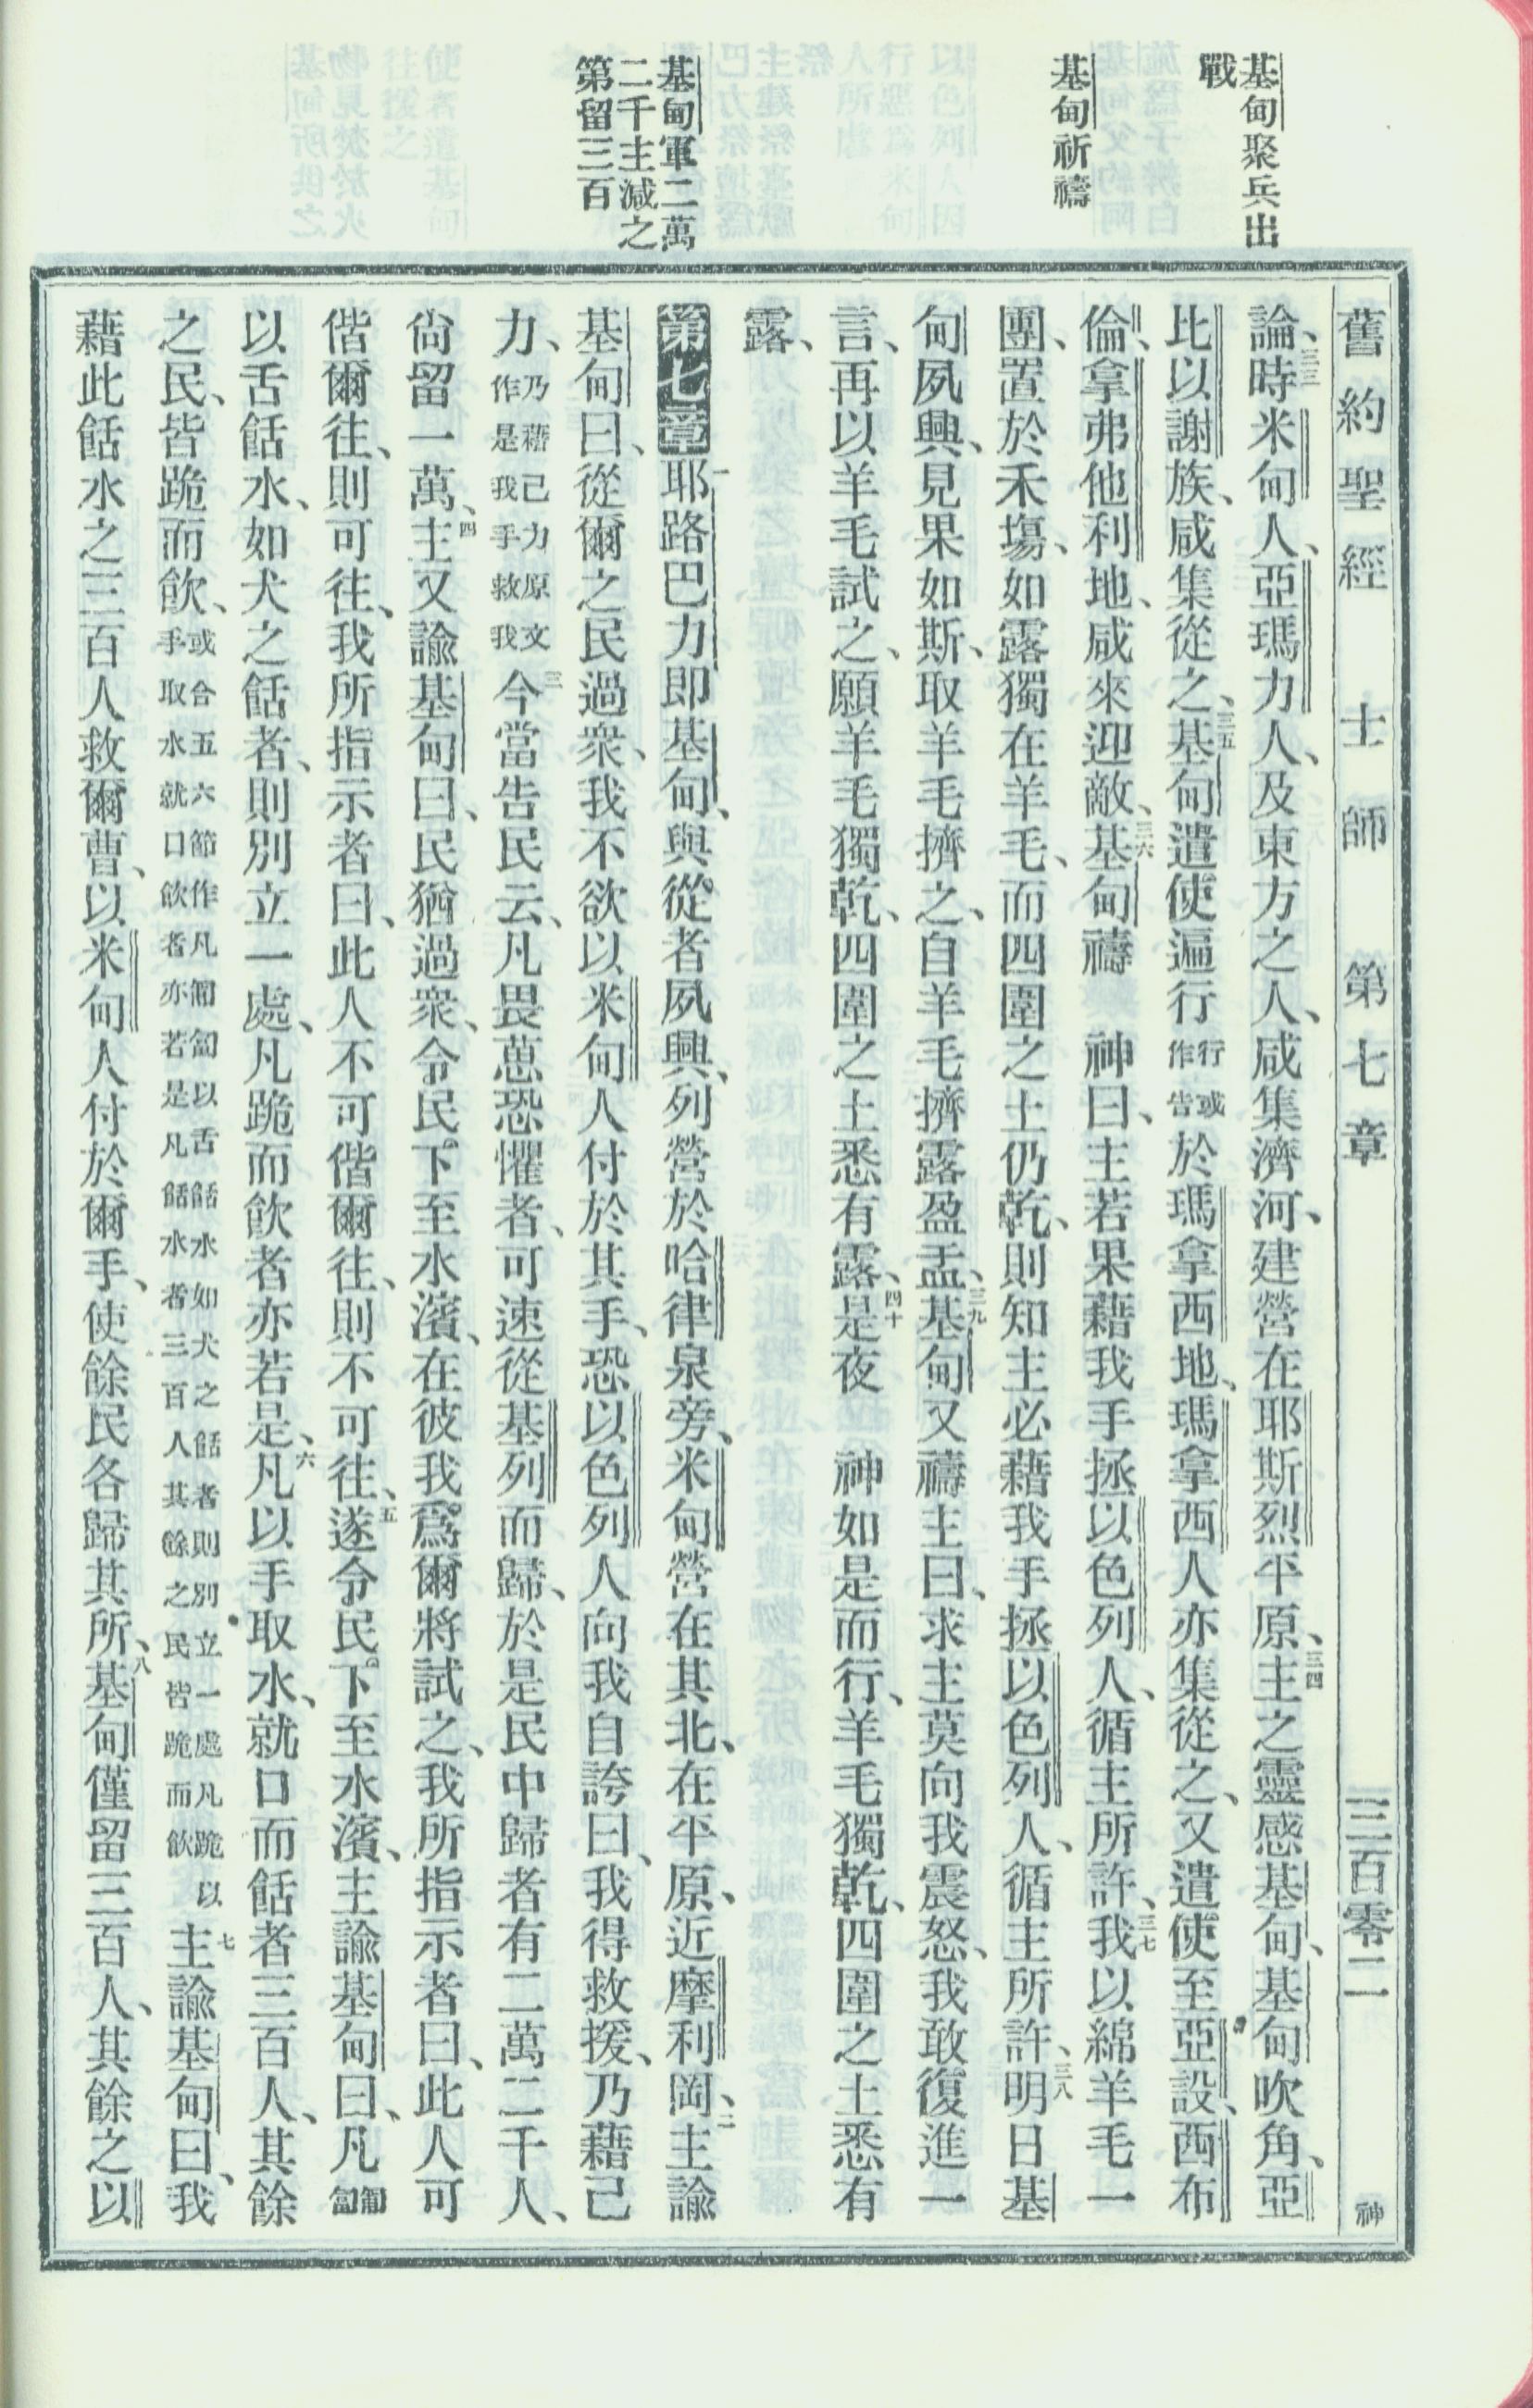 基甸聚兵出
戰
基甸祈禱
基甸軍二萬
二千主減之
第留三百
舊約聖經 士師 第七章 三百零二 神
論、三三時米甸人、亞瑪力人、及東方之人、咸集濟河、建營在耶斯烈平原、三四主之靈感基甸、基甸吹角、亞
比以謝族、咸集從之、三五基甸遣使遍行行或作告於瑪拿西地、瑪拿西人亦集從之、又遣使至亞設、西布
倫、拿弗他利地、咸來迎敵、三六基甸禱 神曰、主若果藉我手拯以色列人、循主所許、三七我以綿羊毛一
團、置於禾塲、如露獨在羊毛、而四圍之土仍乾、則知主必藉我手拯以色列人、循主所許、三八明日基
甸夙興、見果如斯、取羊毛擠之、自羊毛擠露盈盂、三九基甸又禱主曰、求主莫向我震怒、我敢復進一
言、再以羊毛試之、願羊毛獨乾、四圍之土悉有露、四十是夜 神如是而行、羊毛獨乾、四圍之土悉有
露、
第七章一耶路巴力即基甸、與從者夙興、列營於哈律泉旁、米甸營在其北、在平原、近摩利岡、二主諭
基甸曰、從爾之民過衆、我不欲以米甸人付於其手、恐以色列人向我自誇曰、我得救援、乃藉己
力、乃藉己力原文作是我手救我三今當告民云、凡畏葸恐懼者、可速從基列而歸、於是民中歸者有二萬二千人、
尚留一萬、四主又諭基甸曰、民猶過衆、令民下至水濱、在彼我爲爾將試之、我所指示者曰、此人可
偕爾往、則可往、我所指示者曰、此人不可偕爾往、則不可往、五遂令民下至水濱、主諭基甸曰、凡匍匐
以舌餂水、如犬之餂者、則別立一處、凡跪而飲者亦若是、六凡以手取水、就口而餂者三百人、其餘
之民、皆跪而飲、或合五六節作凡匍匐以舌餂水如犬之餂者則別立一處凡跪以手取水就口飲者亦若是凡餂水者三百人其餘之民皆跪而飲七主諭基甸曰、我
藉此餂水之三百人救爾曹、以米甸人付於爾手、使餘民各歸其所、八基甸僅留三百人、其餘之以